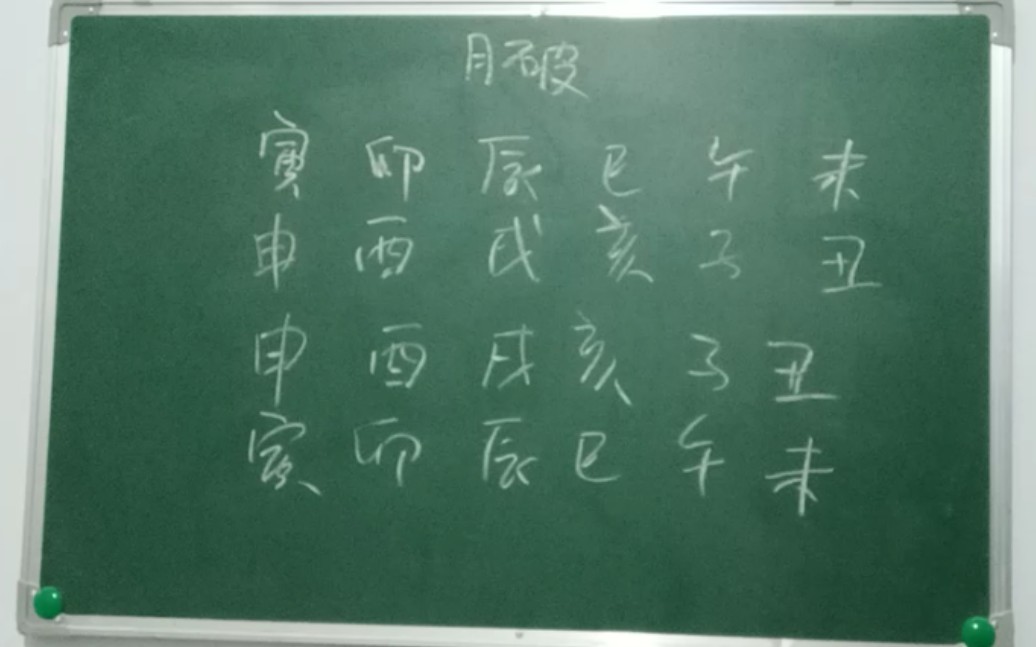 月破
寅 卯 辰 巳 午 未
申 酉 戌 亥 子 丑
申 酉 戌 亥 子 丑
寅 卯 辰 巳 午 未